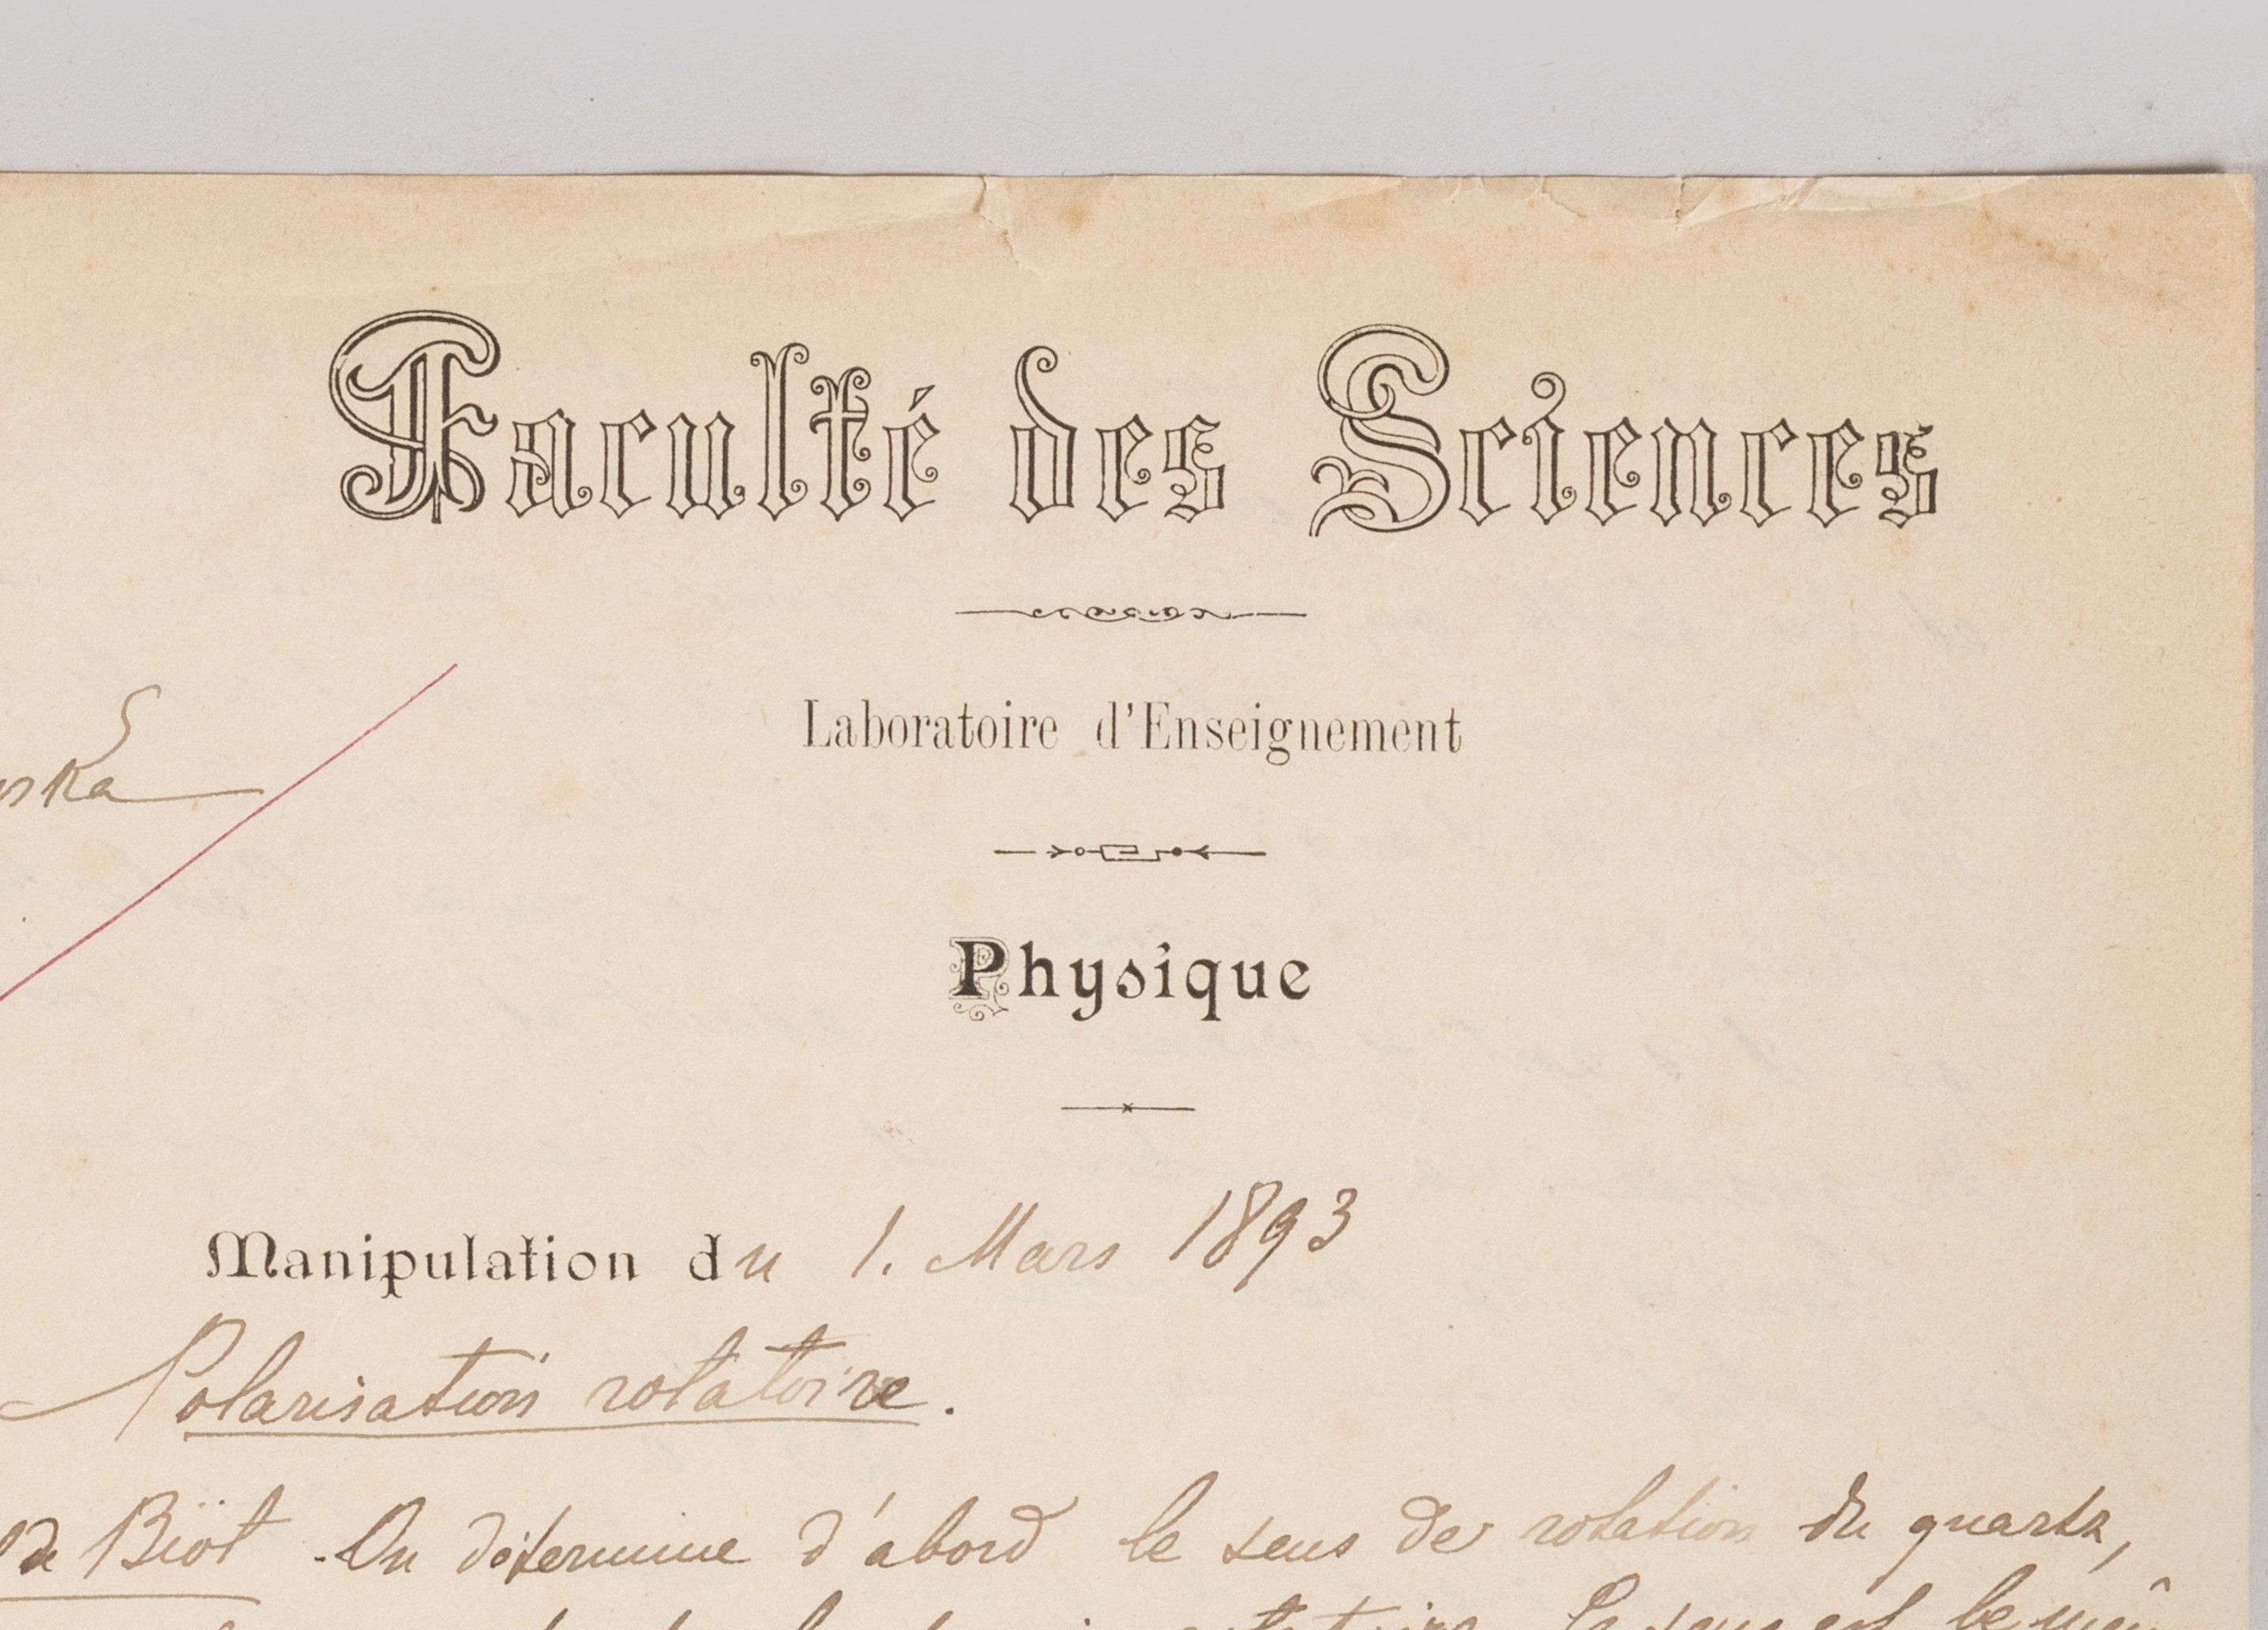 Faculté des Sciences
Laboratoire d'Enseignement
ska
Physique
Manipulation du 1. Mars 1893
Polarisation rotatoire.
de Biot. On détermine d'abord le sens de rotation du quartz,
Le sens est le mêm